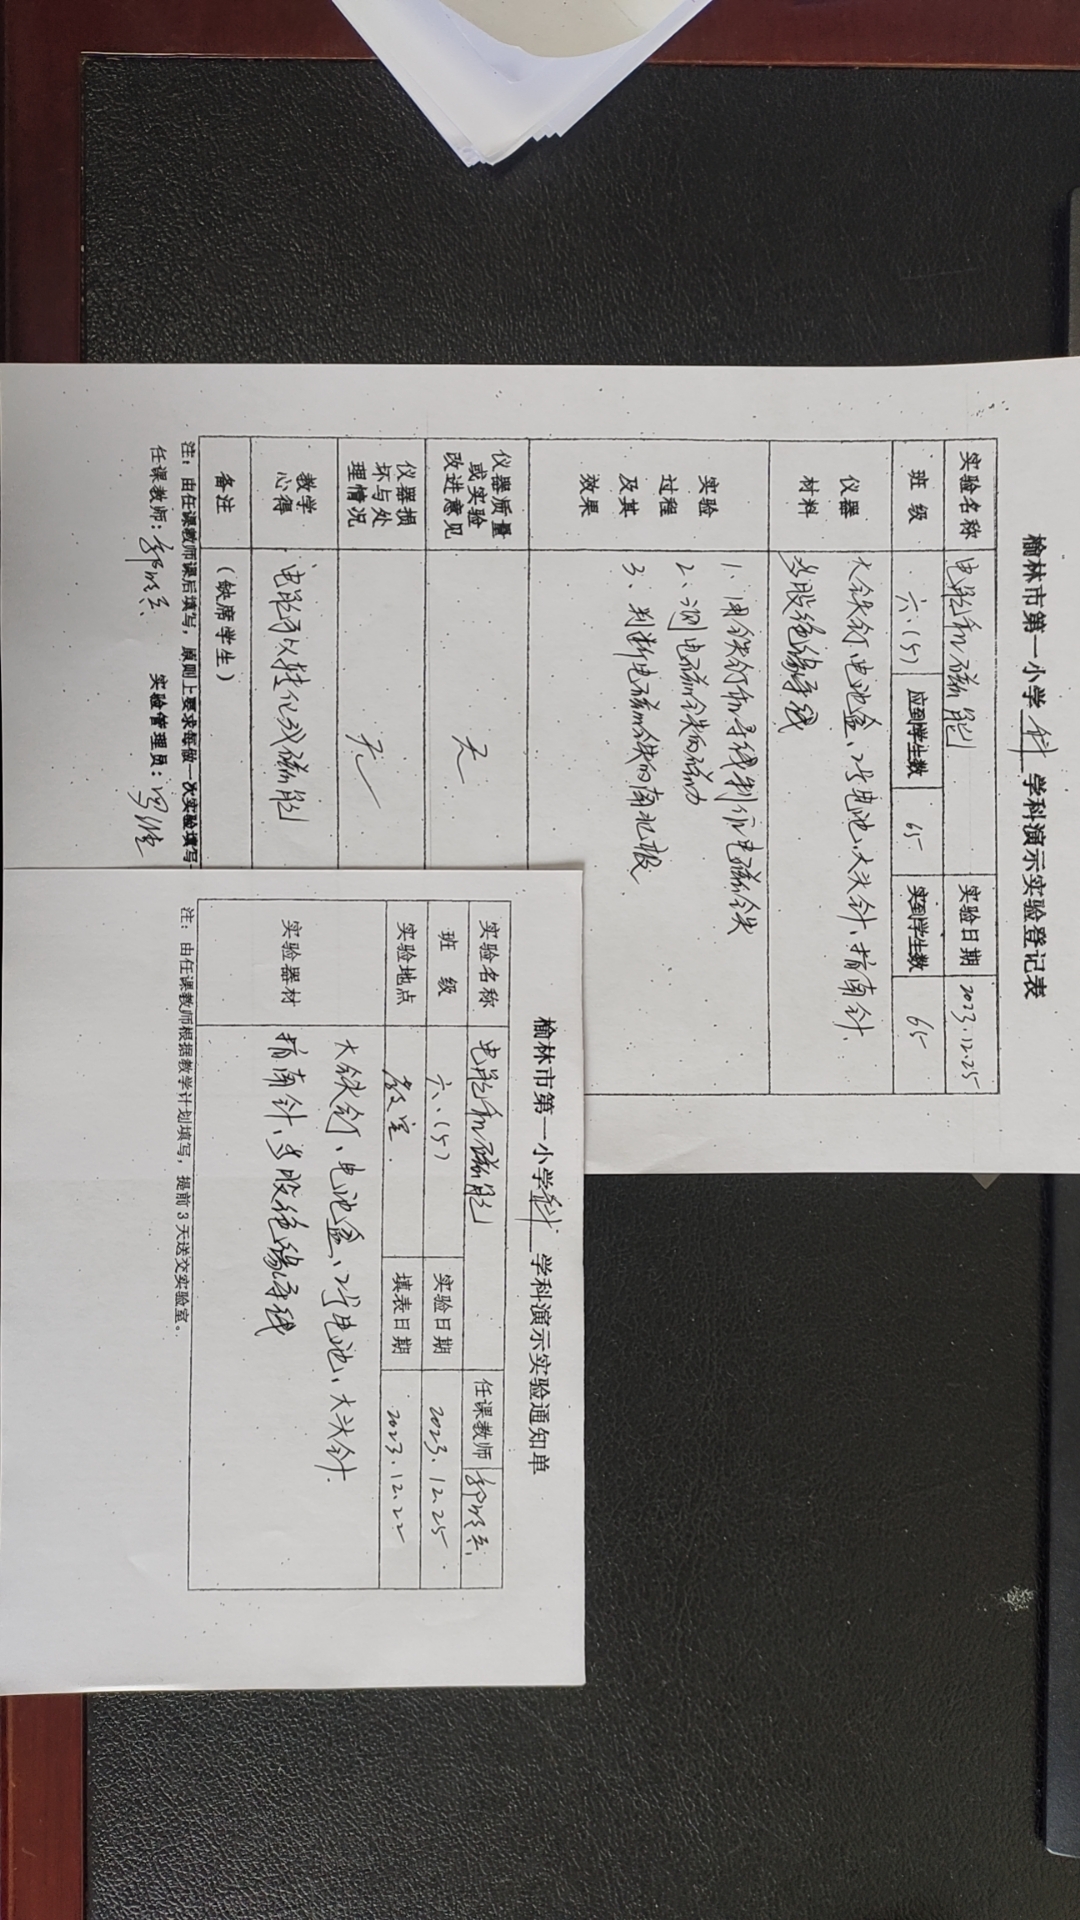 榆林市第一小学科学科演示实验登记表
实验名称 电能和磁能 实验日期 2023.12.25
班 级 六.(5) 应到学生数 65 实到学生数 65
仪器
材料
大铁钉、电池盒、2号电池、大头针、指南针
多股绝缘导线
实验
过程
及其
效果
1、用铁钉和导线制作电磁铁
2、测电磁铁的磁力
3、判断电磁铁的南北极
仪器质量
或实验
改进意见
无
仪器损
坏与处
理情况
无
教学
心得
电能可以转化成磁能
备注 (缺席学生)
注：由任课教师课后填写，原则上要求每做一次实验填写
任课教师： 实验管理员：
榆林市第一小学科学科演示实验通知单
实验名称 电能和磁能 任课教师
班 级 六.(5) 实验日期 2023.12.25
实验地点 教室 填表日期 2023.12.22
实验器材
大铁钉、电池盒、2号电池、大头针
指南针、多股绝缘导线
注：由任课教师根据教学计划填写，提前3天送交实验室。